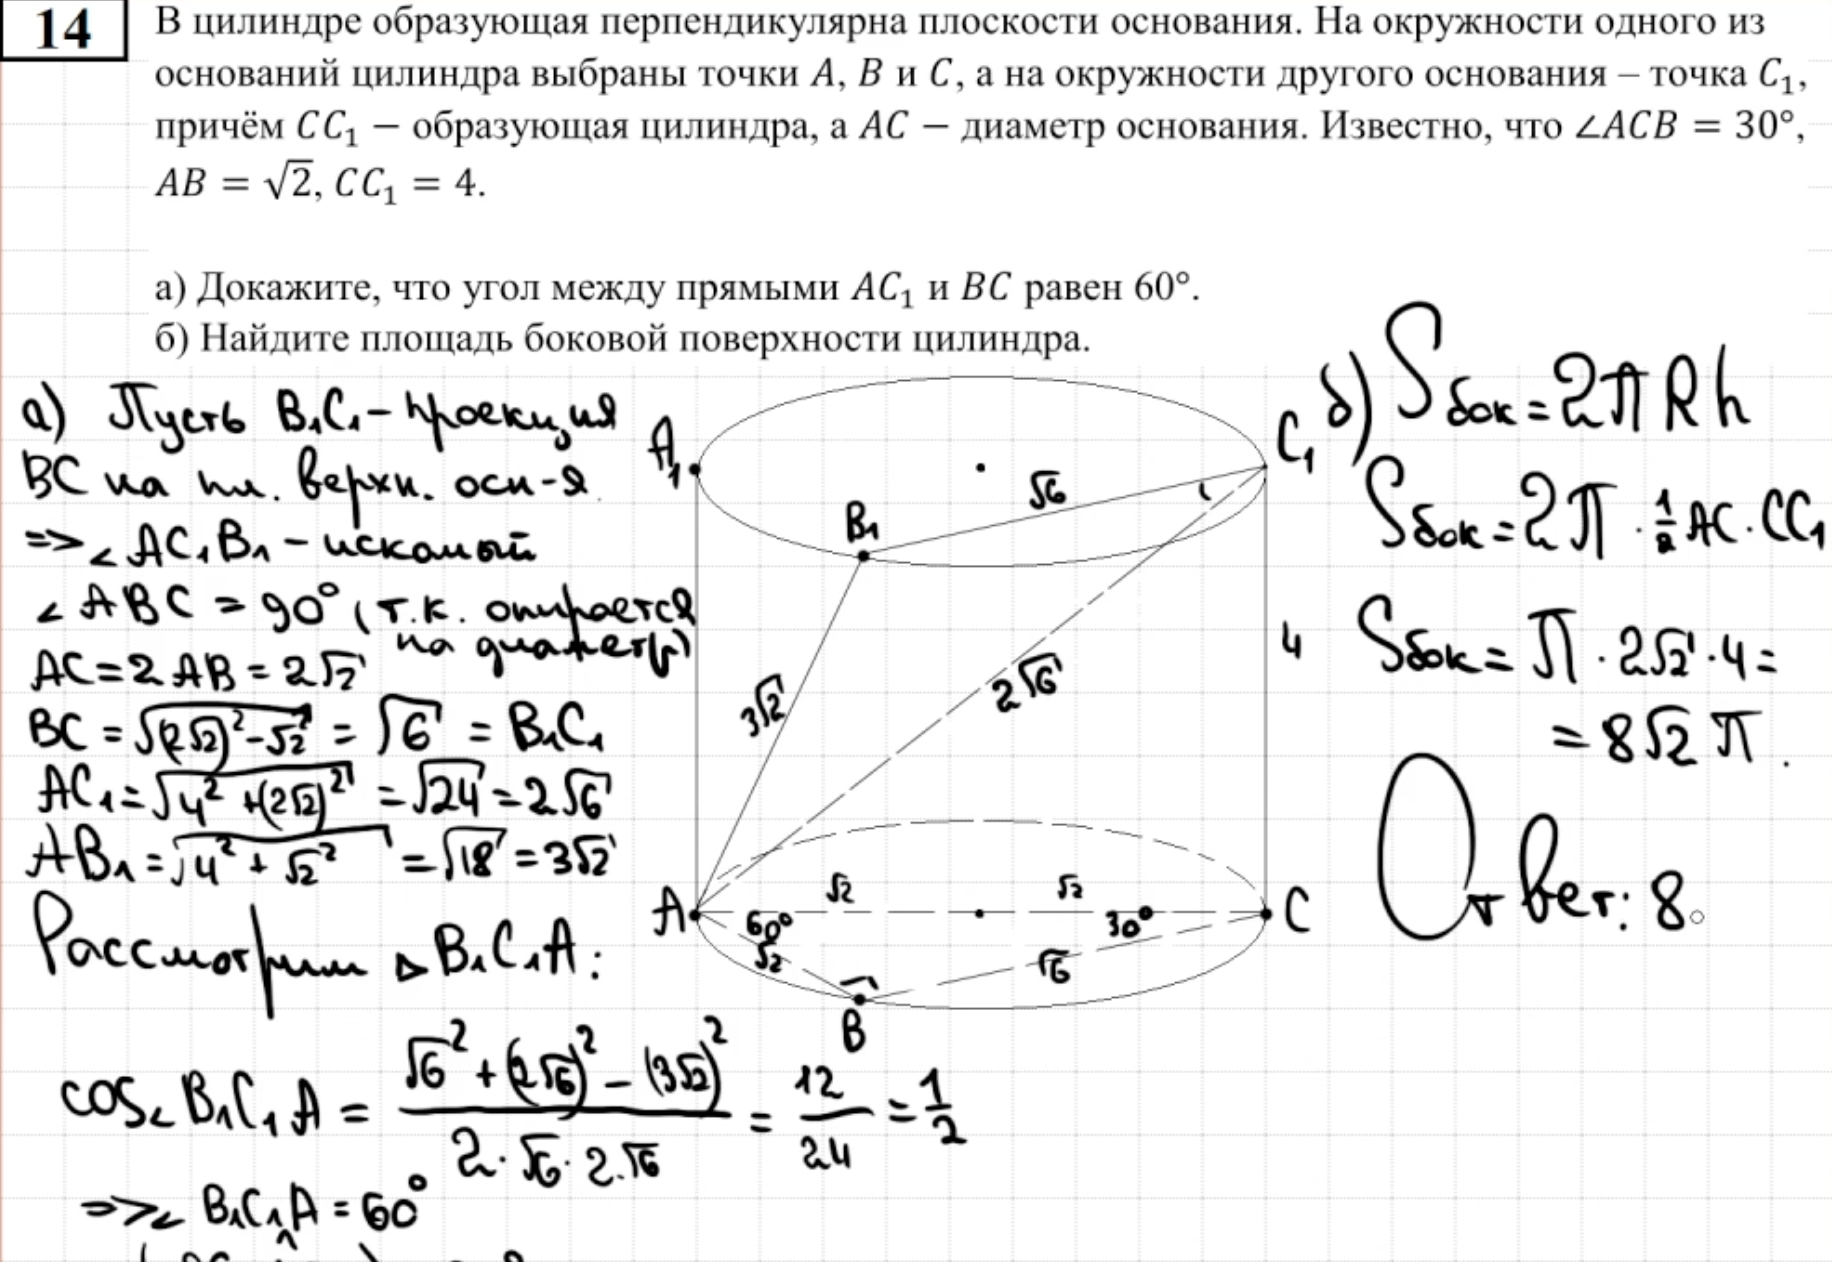 14
В цилиндре образующая перпендикулярна плоскости основания. На окружности одного из
оснований цилиндра выбраны точки A, B и C, а на окружности другого основания – точка C₁,
причём CC₁ – образующая цилиндра, а AC – диаметр основания. Известно, что ∠ACB = 30°,
AB = √2, CC₁ = 4.
а) Докажите, что угол между прямыми AC₁ и BC равен 60°.
б) Найдите площадь боковой поверхности цилиндра.
а) Пусть B₁C₁ - проекция
BC на пл. верхн. осн-я
=> ∠AC₁B₁ - искомый
∠ABC = 90° (т.к. опирается
на диаметр)
AC = 2AB = 2√2
BC = √((2√2)² - √2²) = √6 = B₁C₁
AC₁ = √(4² + (2√2)²) = √24 = 2√6
AB₁ = √(4² + √2²) = √18 = 3√2
Рассмотрим △B₁C₁A:
cos∠B₁C₁A = (√6² + (2√6)² - (3√2)²) / (2·√6·2·√6) = 12/24 = 1/2
=> ∠B₁C₁A = 60°
A₁
C₁
B₁
√6
3√2
2√6
4
A
60°
√2
√2
30°
C
√2
√6
B
б) Sбок = 2πRh
Sбок = 2π · 1/2 AC · CC₁
Sбок = π · 2√2 · 4 =
= 8√2 π.
Ответ: 8